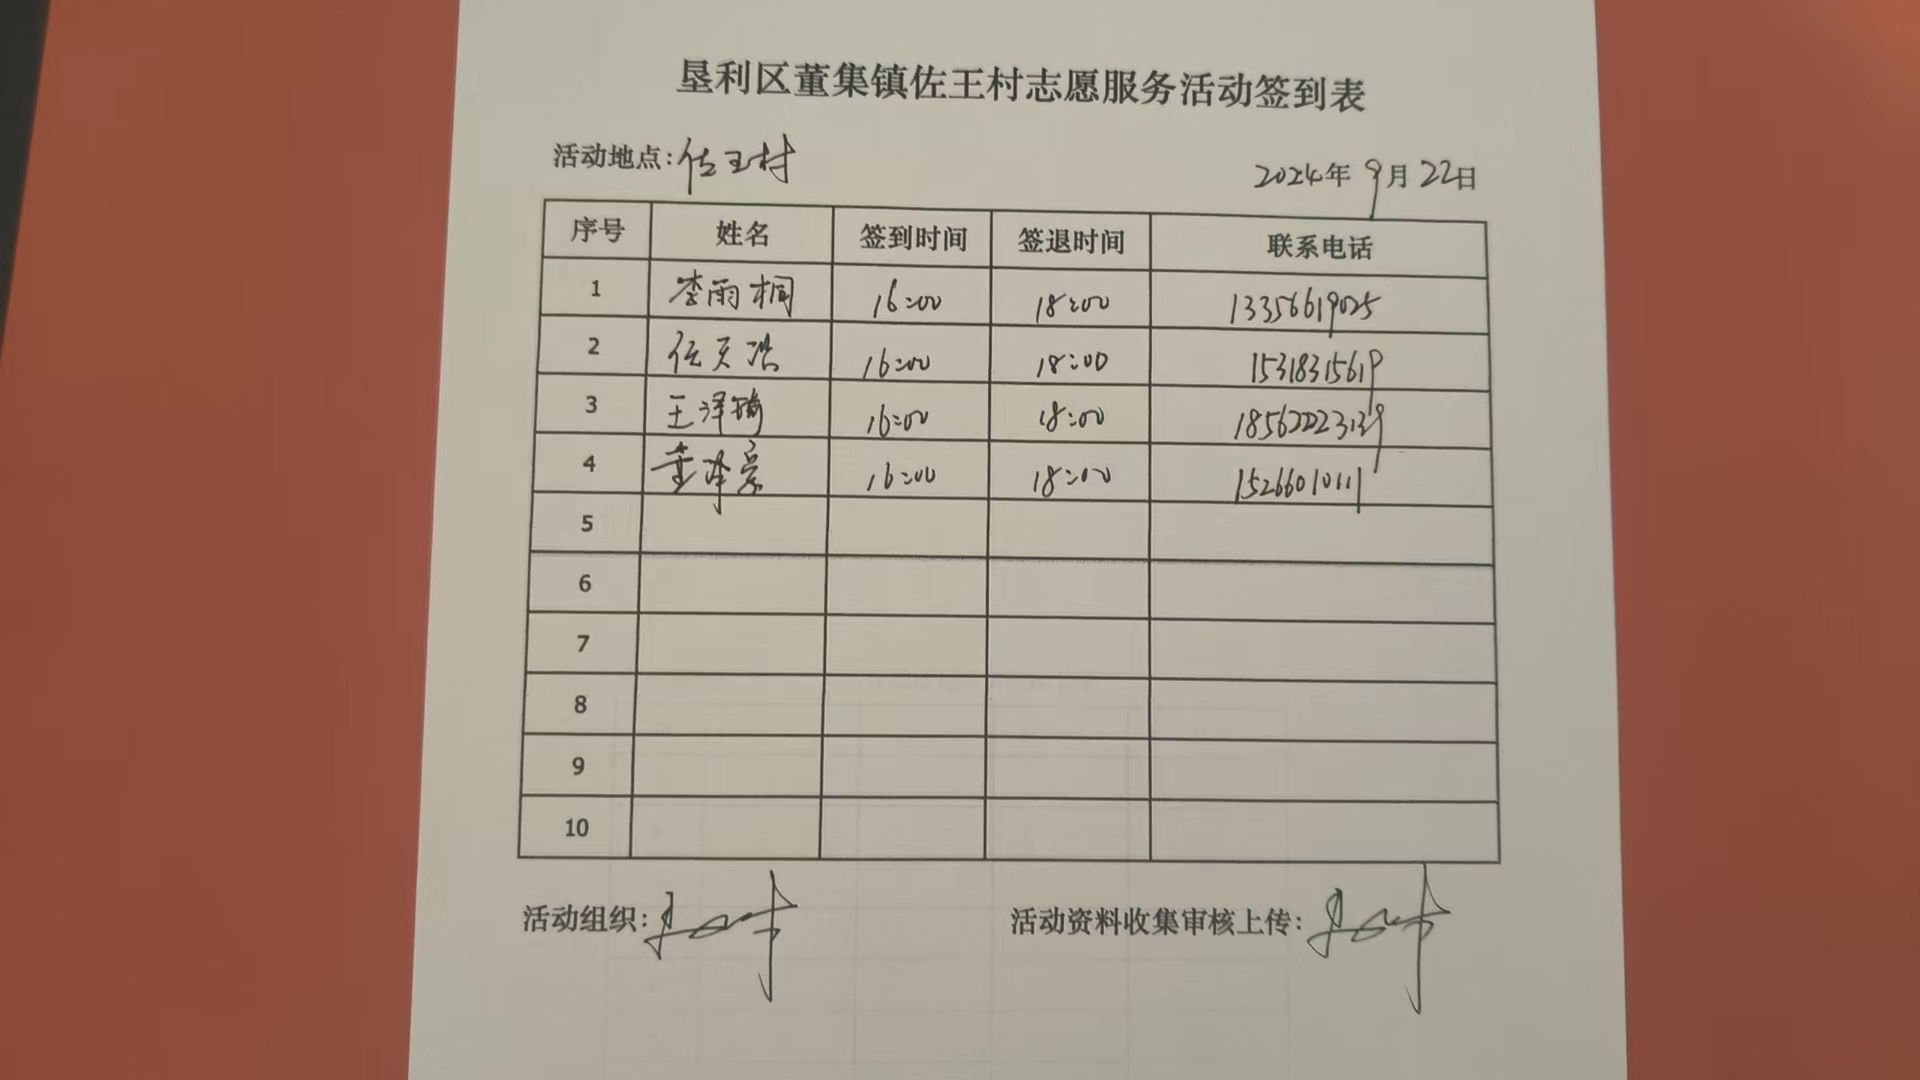 垦利区董集镇佐王村志愿服务活动签到表
活动地点:佐王村 2024年 9月 22日
序号 姓名 签到时间 签退时间 联系电话
1 李雨桐 16:00 18:00 13356619025
2 任天浩 16:00 18:00 15318315619
3 王泽 16:00 18:00
4 董泽 16:00 18:00 15266010111
5
6
7
8
9
10
活动组织: 活动资料收集审核上传: